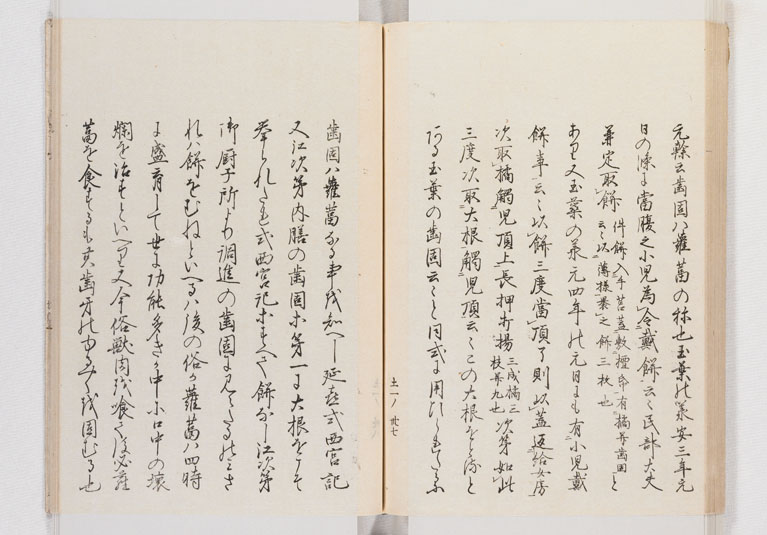 元繇云歯固ハ蘿蔔の祢也玉葉の承安三年元
日の條に當腹之小児為令戴餅云々民部大夫
兼定取餅件餅入手筥蓋敷檀帋有橘并歯固と
云以薄様裹之餅三枚也
あり又玉葉の承元四年の元日にも有小児戴
餅事云々以餅三度當頂了則以蓋返給女房
次取橘觸児頂上長押打揚三成橘三
枝并九也次第如此
三度次取大根觸児頂云々この大根をとると
ある玉葉の歯固云々と同式に用ひ
歯固ハ蘿蔔なる事を知へし延喜式西宮記
又江次第内膳の歯固も第一に大根を
挙られたれ式西宮記にもミへき餅なし江次第
御厨子所より調進の歯固に見へたるのミさ
れハ餅をむねといへるハ後の俗か蘿蔔ハ四時
に盛育して世に功能多きか中に口中の壊
爛を治すといへり又今俗獣肉を喰ふは必蘿
蔔を食するも其歯牙のゆるみを固むる也
十一ノ廿七